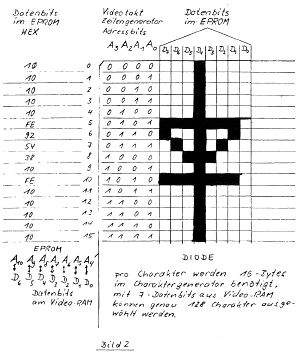 Datenbits im EPROM HEX
Videotakt Zeilengenerator Adressbits
Datenbits im EPROM
A3 A2 A1 A0
10 0 0 0 0 0
10 1 0 0 0 1
10 2 0 0 1 0
10 3 0 0 1 1
10 4 0 1 0 0
FE 5 0 1 0 1
92 6 0 1 1 0
54 7 0 1 1 1
38 8 1 0 0 0
10 9 1 0 0 1
FE 10 1 0 1 0
10 11 1 0 1 1
10 12 1 1 0 0
10 13 1 1 0 1
10 14 1 1 1 0
10 15 1 1 1 1
EPROM
A10 A9 A8 A7 A6 A5 A4
D6 D5 D4 D3 D2 D1 D0
Datenbits
am Video-RAM
DIODE
pro Charakter werden 16-Bytes
im Charaktergenerator benötigt,
mit 7-Datenbits aus Video-RAM
können genau 128 Charakter ausge-
wählt werden.
Bild 2